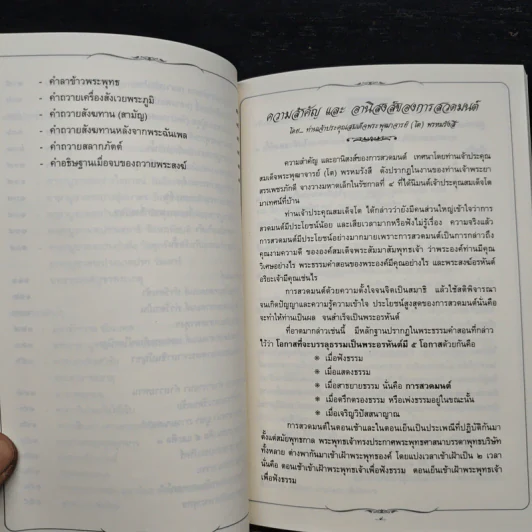 - คำลาข้าวพระพุทธ
- คำถวายเครื่องสังเวยพระภูมิ
- คำถวายสังฆทาน (สามัญ)
- คำถวายสังฆทานหลังจากพระฉันเพล
- คำถวายสลากภัตต์
- คำอธิษฐานเมื่อจบของถวายพระสงฆ์
ความสำคัญ และ อานิสงส์ของการสวดมนต์
โดย.. ท่านเจ้าประคุณสมเด็จพระพุฒาจารย์ (โต) พรหมรังสี
ความสำคัญ และอานิสงส์ของการสวดมนต์ เทศนาโดยท่านเจ้าประคุณ
สมเด็จพระพุฒาจารย์ (โต) พรหมรังสี ดังปรากฏในงานของท่านเจ้าพระยา
สรรเพชรภักดี จางวางมหาดเล็กในรัชกาลที่ ๔ ที่ได้นิมนต์เจ้าประคุณสมเด็จโต
มาเทศน์ที่บ้าน
ท่านเจ้าประคุณสมเด็จโต ได้กล่าวว่ายังมีคนส่วนใหญ่เข้าใจว่าการ
สวดมนต์มีประโยชน์น้อย และเสียเวลามากหรือฟังไม่รู้เรื่อง ความจริงแล้ว
การสวดมนต์มีประโยชน์อย่างมากมายเพราะการสวดมนต์เป็นการกล่าวถึง
คุณงามความดี ขององค์สมเด็จพระสัมมาสัมพุทธเจ้า ว่าพระองค์ท่านมีคุณ
วิเศษอย่างไร พระธรรมคำสอนของพระองค์มีคุณอย่างไร และพระสงฆ์อรหันต์
อริยะเจ้ามีคุณเช่นไร
การสวดมนต์ด้วยความตั้งใจจนจิตเป็นสมาธิ แล้วใช้สติพิจารณา
จนเกิดปัญญาและความรู้ความเข้าใจ ประโยชน์สูงสุดของการสวดมนต์นั่นคือ
จะทำให้ท่านเป็นผล จนสำเร็จเป็นพระอรหันต์
ที่อาตมากล่าวเช่นนี้ มีหลักฐานปรากฏในพระธรรมคำสอนที่กล่าว
ไว้ว่า โอกาสที่จะบรรลุธรรมเป็นพระอรหันต์มี ๕ โอกาสด้วยกันคือ
เมื่อฟังธรรม
เมื่อแสดงธรรม
เมื่อสาธยายธรรม นั่นคือ การสวดมนต์
เมื่อตรึกตรองธรรม หรือเพ่งธรรมอยู่ในขณะนั้น
เมื่อเจริญวิปัสสนาญาณ
การสวดมนต์ในตอนเช้าและในตอนเย็นเป็นประเพณีที่ปฏิบัติกันมา
ตั้งแต่สมัยพุทธกาล พระพุทธเจ้าทรงประกาศพระพุทธศาสนาบรรดาพุทธบริษัท
ทั้งหลาย ต่างพากันมาเข้าเฝ้าพระพุทธองค์ โดยแบ่งเวลาเข้าเฝ้าเป็น ๒ เวลา
นั่นคือ ตอนเช้าเข้าเฝ้าพระพุทธเจ้าเพื่อฟังธรรม ตอนเย็นเข้าเฝ้าพระพุทธเจ้า
เพื่อฟังธรรม